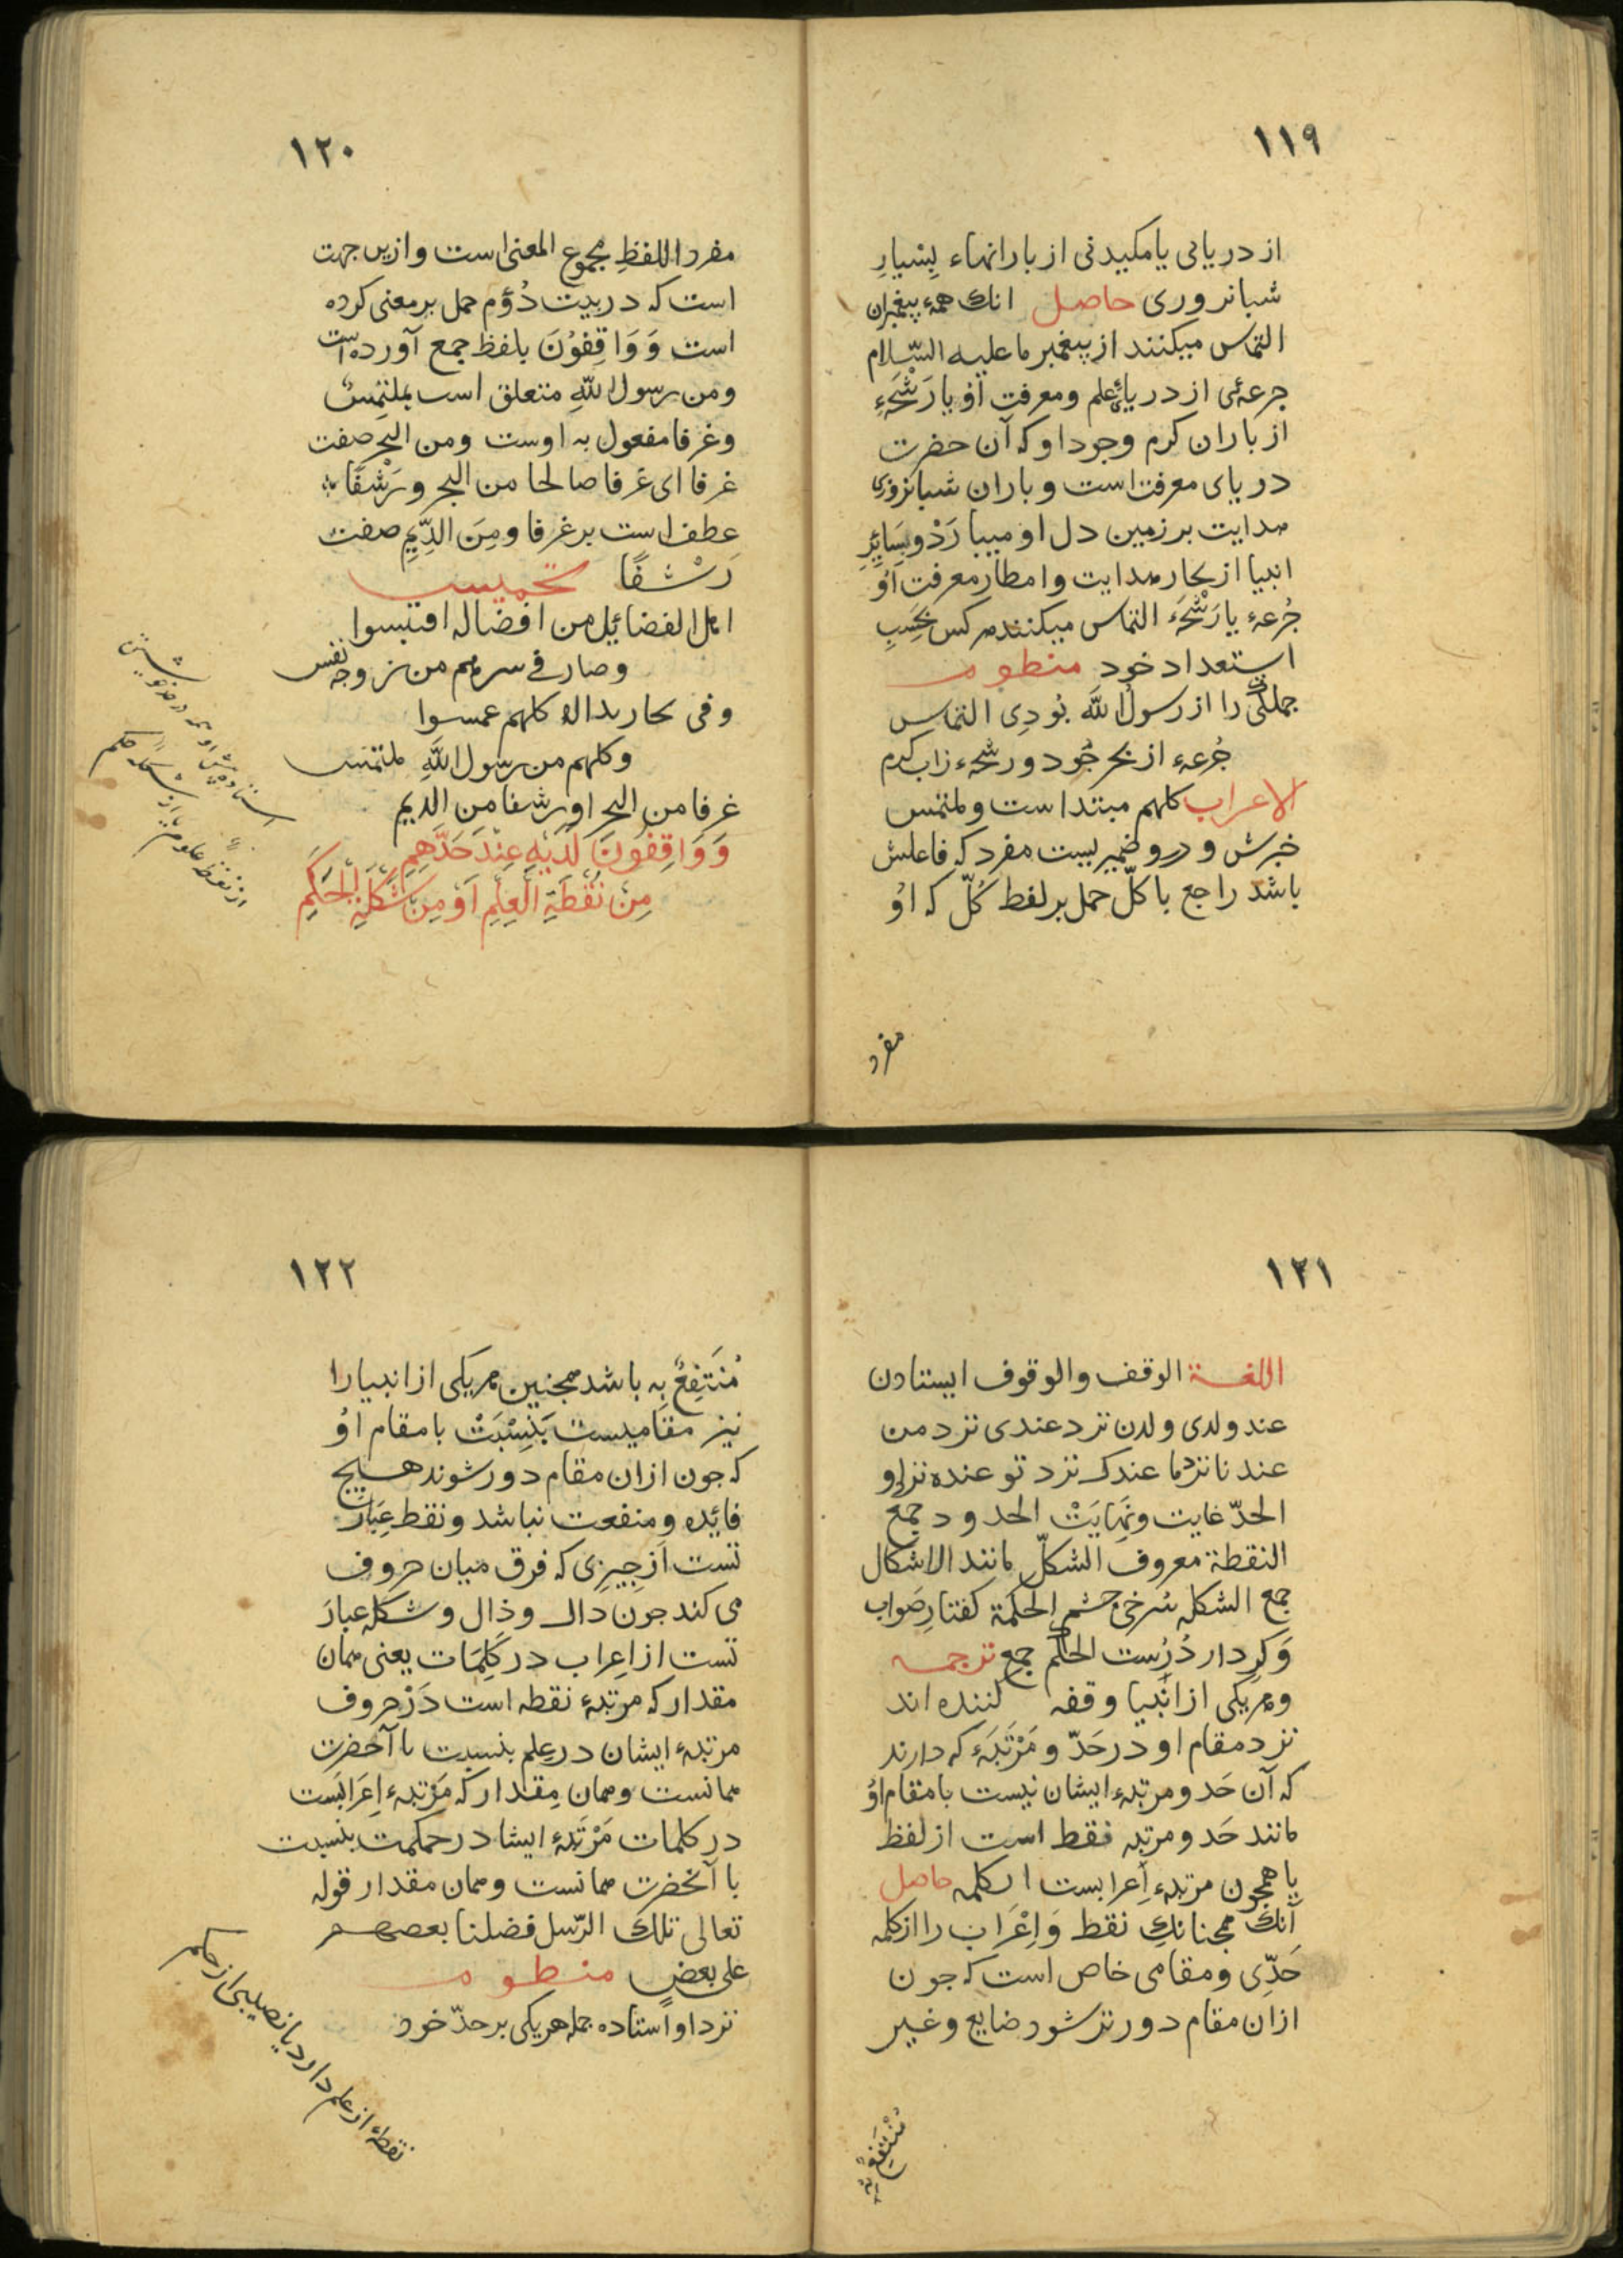 ۱۱۹
از دریائی یا مکیدنی از بارانهاء بسیارِ
شبانروری حاصل انك همهٔ پیغمبران
التماس میکنند از پیغمبر ما علیه السّلام
جرعهٔی از دریائ علم ومعرفت اوُ یا رَشْحَهءِ
از باران کرم وجود او که آن حضرت
دریای معرفت است و باران شبانروزی
هدایت بر زمین دل او میبارَدْ و سَایِرِ
انبیا از بحار هدایت وامطار معرفت اوُ
جُرعهٔ یا رَشْحَهٔ التماس میکنند هر کس بحَسَبِ
استعداد خود منظوم
جملکی را از رسولُ اللّٰه بُودِی التماس
جُرعهء از بحر جُود و رشحهء زاب کرم
الاعراب کلهم مبتداست وملتمس
خبرش و درو ضمیریست مفرد که فاعلش
باشد راجع با کلّ حمل بر لفط کُلّ که اوُ
مفرد
۱۲۰
مفرد اللفظِ مجموع المعنی است وازین جهت
است که در بیت دُوُم حمل بر معنی کرده
است وَوَاقِفُوْنَ بلفظ جمع آورده است
ومن رسول اللّٰهِ متعلق اسب بملتمِسٌ
وغرفا مفعول به اوست ومن البحر صفت
غرفا ای غرفا صالحا من البحر ورَشْفًا
عطف است بر غرفا ومِنَ الدِّیَمِ صفت
رَشْفًا تخمیس
اهل الفضائیل من افضاله اقتبسوا
وصار فی سرهم من روحه نفس
وفی بحار نداه کلهم غمسوا
وکلهم من رسول اللّٰهِ ملتمس
غرفا من البحر او رشفا من الدیم
وَوَاقِفُونَ لَدَیْهِ عِنْدَ حَدِّهِمِ
مِنْ نُقْطَةِ الْعِلْمِ اَوْ مِنْ شَکْلَةِ الْحِکَمِ
استاده پیش او همه در حد خویشتن
از نقطهٔ علوم یا از شکلهٔ حکم
۱۲۱
اللغة الوقف والوقوف ایستادن
عند ولدی ولدن نزد عندی نزد من
عندنا نزد ما عندك نزد تو عنده نزد او
الحدّ غایت ونِهَایَتْ الحدود جمع
النقطة معروف الشکلّ مانند الاشکال
جمع الشکله سُرخیِ چشم الحکمة کفتارِ صَواب
وَکردار دُرُست الحکم جمع ترجمه
وهر یکی از انبیا وقفه کننده اند
نزد مقام او در حَدّ و مَرْتَبَهٔ که دارند
که آن حَد و مرتبهٔ ایشان نیست با مقام اوُ
مانند حَد و مرتبه فقط است از لفظ
یا همچون مرتبهء اِعرابست از کلمه حاصل
آنك همچنانك نقط وَاِعْرَاب را از کلمه
حَدِّی ومقامی خاص است که جون
ازان مقام دورتر شود ضایع وغیر
مُنْتَفِعٌ بِه
۱۲۲
مُنْتَفِعٌ بِه باشد همجنین هر یکی از انبیارا
نیز مقامیست بَنِسْبَتْ با مقام اوُ
که جون ازان مقام دور شوند هیچ
فائده ومنفعت نباشد ونقط عِبَارَ
تست از جیزی که فرق میان حروف
می کند جون دال وذال وشکله عبارَ
تست از اِعراب در کَلِمَات یعنی همان
مقدار که مرتبهٔ نقطه است دَرْ حروف
مرتبهٔ ایشان در عِلم بنسبت با آنحضرت
همانست وهمان مِقدار که مَرْتبهء اِعرَابَست
در کلمات مَرْتَبهٔ ایشا در حکمت بنسبت
با آنحضرت همانست وهمان مقدار قوله
تعالی تلك الرّسل فضلنا بعضهم
علی بعضٍ منظوم
نزد او اُستاده جمله هر یکی بر حدّ خود
نقطهٔ از علم دارد یا نصیبی از حکم